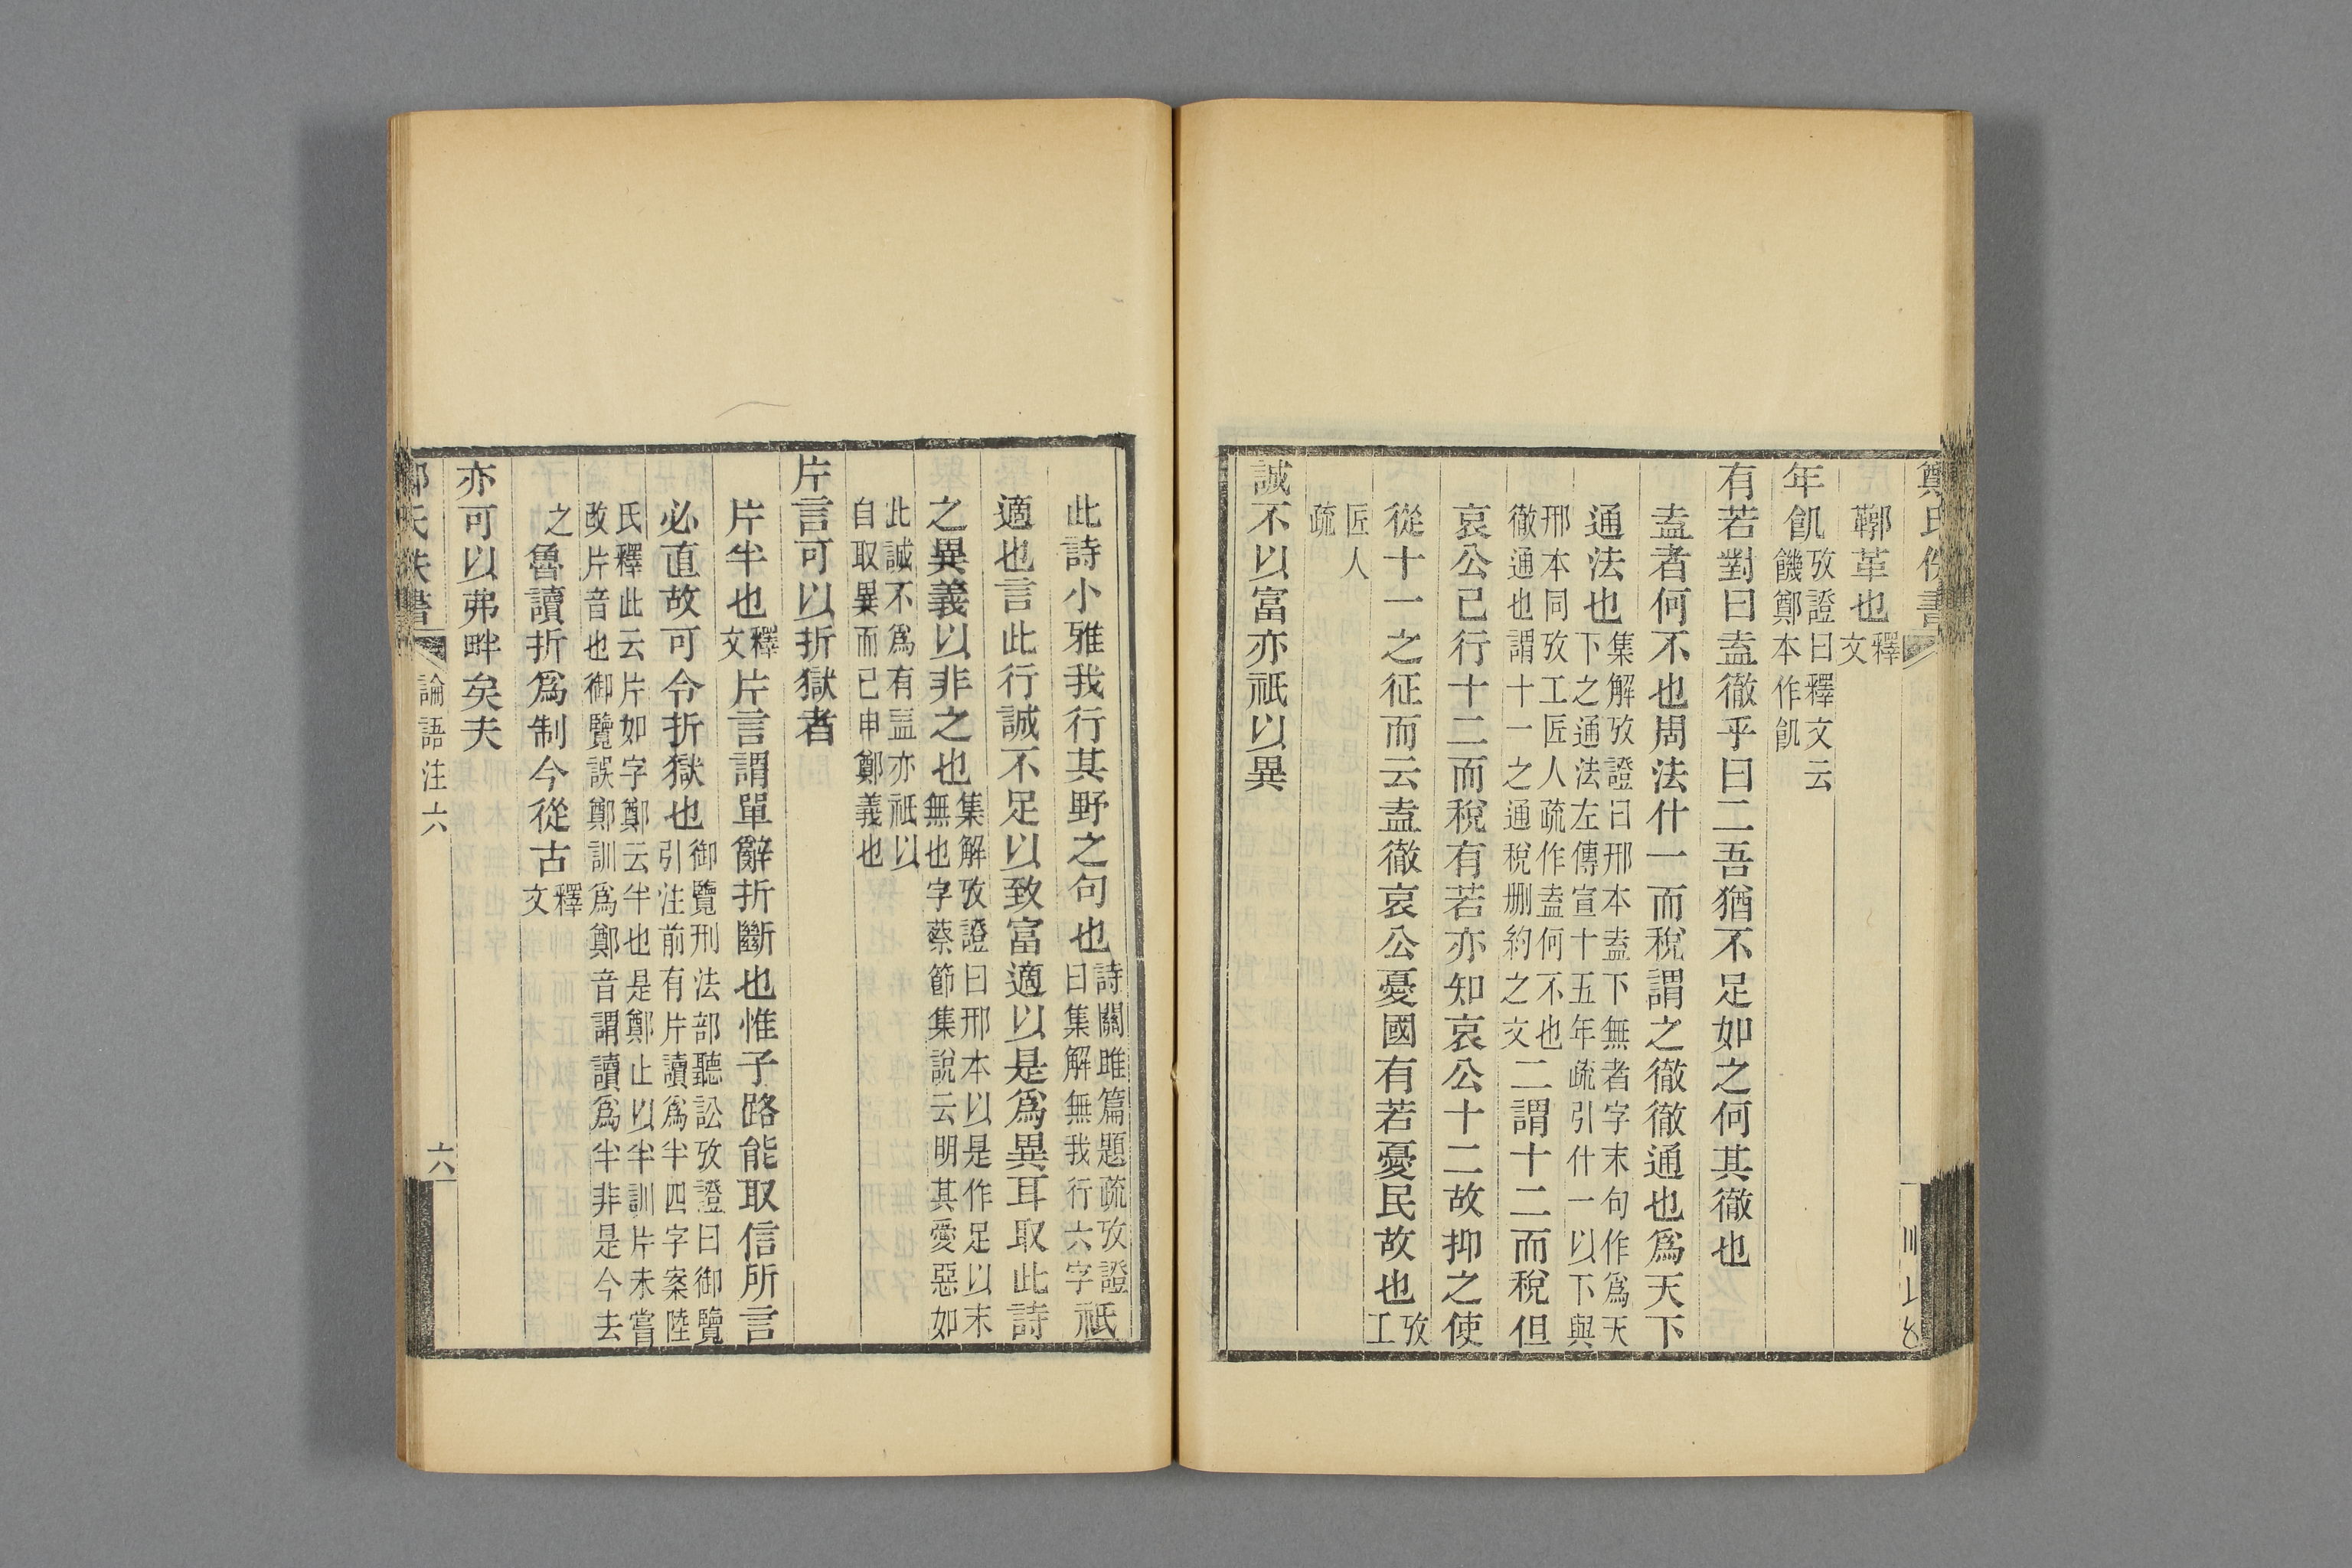 鞹革也釋文
年飢攷證曰釋文云饑鄭本作飢
有若對曰盍徹乎曰二吾猶不足如之何其徹也
盍者何不也周法什一而稅謂之徹徹通也爲天下
通法也集解攷證曰邢本盍下無者字末句作爲天下之通法左傳宣十五年疏引什一以下與
邢本同攷工匠人疏作盍何不也徹通也謂十一之通稅删約之文二謂十二而稅但
哀公已行十二而稅有若亦知哀公十二故抑之使
從十一之征而云盍徹哀公憂國有若憂民故也攷工
匠人疏
誠不以富亦祇以異
此詩小雅我行其野之句也詩關雎篇題疏攷證曰集解無我行六字祇
適也言此行誠不足以致富適以是爲異耳取此詩
之異義以非之也集解攷證曰邢本以是作足以末無也字蔡節集說云明其愛惡如
此誠不爲有益亦祇以自取異而已申鄭義也
片言可以折獄者
片半也釋文片言謂單辭折斷也惟子路能取信所言
必直故可令折獄也御覽刑法部聽訟攷證曰御覽引注前有片讀爲半四字案陸
氏釋此云片如字鄭云半也是鄭止以半訓片未嘗改片音也御覽誤鄭訓爲鄭音謂讀爲半非是今去
之魯讀折爲制今從古釋文
亦可以弗畔矣夫
氏佚書 論語注六 六